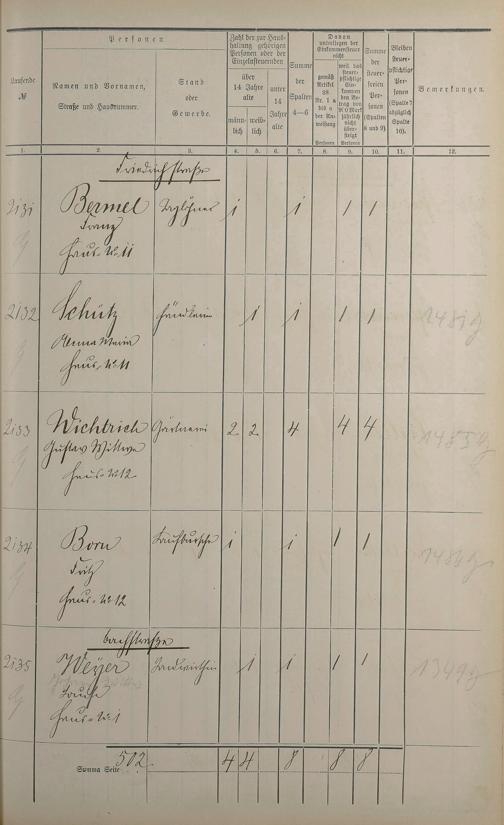 Laufende №
Personen
Namen und Vornamen,
Straße und Hausnummer.
Stand
oder
Gewerbe.
Zahl der zur Haus-
haltung gehörigen
Personen oder der
Einzelsteuernden
über
14 Jahre
alte
männ-
lich
weib-
lich
unter
14
Jahre
alte
Summe
der
Spalten
4—6
Davon
unterliegen der
Einkommensteuer
nicht
gemäß
Artikel
Personen
weil das
steuer-
pflichtige
Ein-
kommen
den Be-
trag von
900 Mark
jährlich
nicht
über-
steigt
Personen
Summe
der
steuer-
freien
Per-
sonen
(Spalten
8 und 9).
Bleiben
steuer-
pflichtige
Per-
sonen
(Spalte 7
abzüglich
Spalte
10).
Bemerkungen.
1. 2. 3. 4. 5. 6. 7. 8. 9. 10. 11. 12.
Friedrichstraße
2131 Bermel Taglöhner 1 1 1 1
Franz
Haus-№ 11
2132 Schütz 1 1 1 1
Anna Maria
Haus-№ 11
2133 Wichtrich Gärtnerei 2 2 4 4 4
Gustav Wittwe
Haus-№ 12
2134 Born Laufbursche 1 1 1 1
Fritz
Haus-№ 12
Bachstraße
2135 Weyer Landwirthin 1 1 1 1
Louise
Haus-№ 1
Summa Seite 502. 4 4 8 8 8